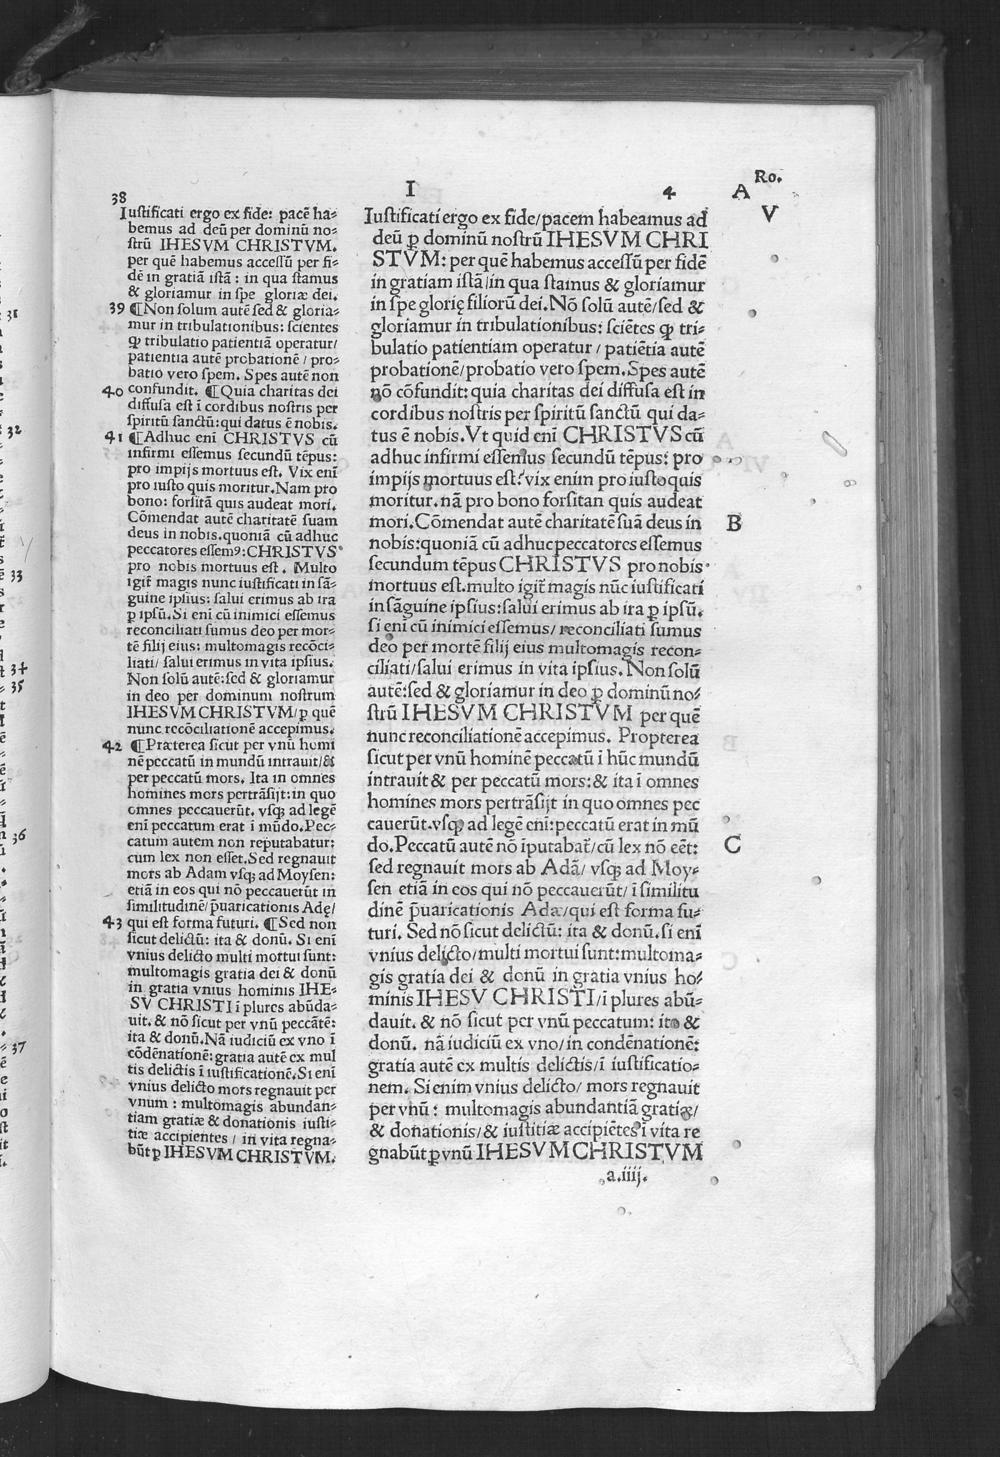 I
4
Ro.
A
V
38
Iustificati ergo ex fide: pacē ha-
bemus ad deū per dominū no-
strū IHESVM CHRISTVM.
per quē habemus accessū per fi-
dē in gratiā istā : in qua stamus
& gloriamur in spe gloriæ dei.
39 ¶Non solum autē sed & gloria-
mur in tribulationibus: scientes
ꝙ tribulatio patientiā operatur/
patientia autē probationē / pro-
batio vero spem. Spes autē non
40 confundit. ¶Quia charitas dei
diffusa est ī cordibus nostris per
spiritū sanctū: qui datus ē nobis.
41 ¶Adhuc enī CHRISTVS cū
infirmi essemus secundū tēpus:
pro impijs mortuus est. Vix enī
pro iusto quis moritur. Nam pro
bono: forsitā quis audeat mori.
Cōmendat autē charitatē suam
deus in nobis. quoniā cū adhuc
peccatores essemꝰ: CHRISTVS
pro nobis mortuus est . Multo
igit̄ magis nunc iustificati in sā-
guine ipsius: salui erimus ab ira
ꝑ ipsū. Si enī cū inimici essemus
reconciliati sumus deo per mor-
tē filij eius: multomagis recōci-
liati/ salui erimus in vita ipsius.
Non solū autē: sed & gloriamur
in deo per dominum nostrum
IHESVM CHRISTVM/ ꝑ quē
nunc recōciliationē accepimus.
42 ¶Præterea sicut per vnū homi
nē peccatū in mundū intrauit/&
per peccatū mors. Ita in omnes
homines mors pertrāsijt: in quo
omnes peccauerūt. vsqꝫ ad legē
enī peccatum erat ī mūdo. Pec-
catum autem non reputabatur:
cum lex non esset. Sed regnauit
mors ab Adam vsqꝫ ad Moysen:
etiā in eos qui nō peccauerūt in
similitudinē/ p̄uaricationis Adę/
43 qui est forma futuri. ¶Sed non
sicut delictū: ita & donū. Si enī
vnius delicto multi mortui sunt:
multomagis gratia dei & donū
in gratia vnius hominis IHE-
SV CHRISTI ī plures abūda-
uit. & nō sicut per vnū peccātē:
ita & donū. Nā iudiciū ex vno ī
cōdēnationē: gratia autē ex mul
tis delictis ī iustificationē. Si enī
vnius delicto mors regnauit per
vnum : multōmagis abundan-
tiam gratiæ & donationis iusti-
tiæ accipientes / in vita regna-
būt ꝑ IHESVM CHRISTVM.
Iustificati ergo ex fide/ pacem habeamus ad
deū ꝑ dominū nostrū IHESVM CHRI
STVM: per quē habemus accessū per fidē
in gratiam istā/ in qua stamus & gloriamur
in spe glorię filiorū dei. Nō solū autē/ sed &
gloriamur in tribulationibus: sciētes ꝙ tri-
bulatio patientiam operatur / patiētia autē
probationē/ probatio vero spem. Spes autē
nō cōfundit: quia charitas dei diffusa est in
cordibus nostris per spiritū sanctū qui da-
tus ē nobis. Vt quid enī CHRISTVS cū
adhuc infirmi essemus secundū tēpus: pro
impijs mortuus est? vix enim pro iusto quis
moritur. nā pro bono forsitan quis audeat
mori. Cōmendat autē charitatē suā deus in
B
nobis: quoniā cū adhuc peccatores essemus
secundum tēpus CHRISTVS pro nobis
mortuus est. multo igit̄ magis nūc iustificati
in sāguine ipsius: salui erimus ab ira ꝑ ipsū.
si enī cū inimici essemus/ reconciliati sumus
deo per mortē filij eius multomagis recon-
ciliati/ salui erimus in vita ipsius. Non solū
autē: sed & gloriamur in deo ꝑ dominū no-
strū IHESVM CHRISTVM per quē
nunc reconciliationē accepimus. Propterea
sicut per vnū hominē peccatū ī hūc mundū
intrauit & per peccatū mors: & ita ī omnes
homines mors pertrāsijt in quo omnes pec
cauerūt. vsqꝫ ad legē enī: peccatū erat in mū
do. Peccatū autē nō īputabat̄/ cū lex nō eēt:
C
sed regnauit mors ab Adā/ vsqꝫ ad Moy-
sen etiā in eos qui nō peccauerūt/ ī similitu
dinē p̄uaricationis Adæ/ qui est forma fu-
turi. Sed nō sicut delictū: ita & donū. si enī
vnius delicto/ multi mortui sunt: multoma-
gis gratia dei & donū in gratia vnius ho-
minis IHESV CHRISTI/ ī plures abū-
dauit. & nō sicut per vnū peccatum: ita &
donū. nā iudiciū ex vno/ in condēnationē:
gratia autē ex multis delictis/ ī iustificatio-
nem. Si enim vnius delicto/ mors regnauit
per vnū : multomagis abundantiā gratiæ/
& donationis/ & iustitiæ accipiētes ī vita re
gnabūt ꝑ vnū IHESVM CHRISTVM
a.iiij.
31
32
33
34
35
36
37